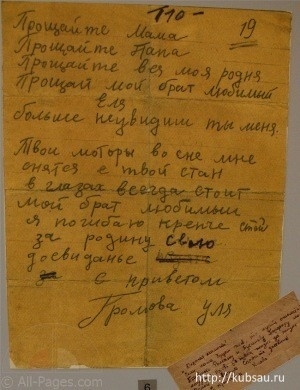 Т10-
19
Прощайте Мама
Прощайте Папа
Прощайте вся моя родня
Прощай мой брат любимый
Еля
больше неувидиш ты меня.
Твои моторы во сне мне
снятся е твой стан
в глазах всегда стоит
мой брат любимый
я погибаю крепче стой
за родину свою
досвиданье
с приветом
Громова Уля
6
© All-Pages.com
http://kubsau.ru/